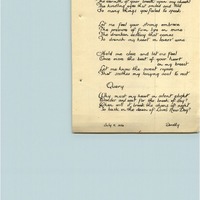 The warmth of your breath upon my cheek!
The thrilling that and
So many things you failed to speak.
Let me feel your strong embrace
The pressure of firm lips on mine
The drunken nothing that comes
To drench my heart in lovers' wine
Hold me close and let me feel
Once more the beat of your heart
on my breast
Let me know the sweet
That soothes my longing soul to rest
Query
Why must my heart in silent plight
Wander and wait for the break of day?
When will it break the chains of night
To bask in the dawn of Love's New Day?
July
Dorothy